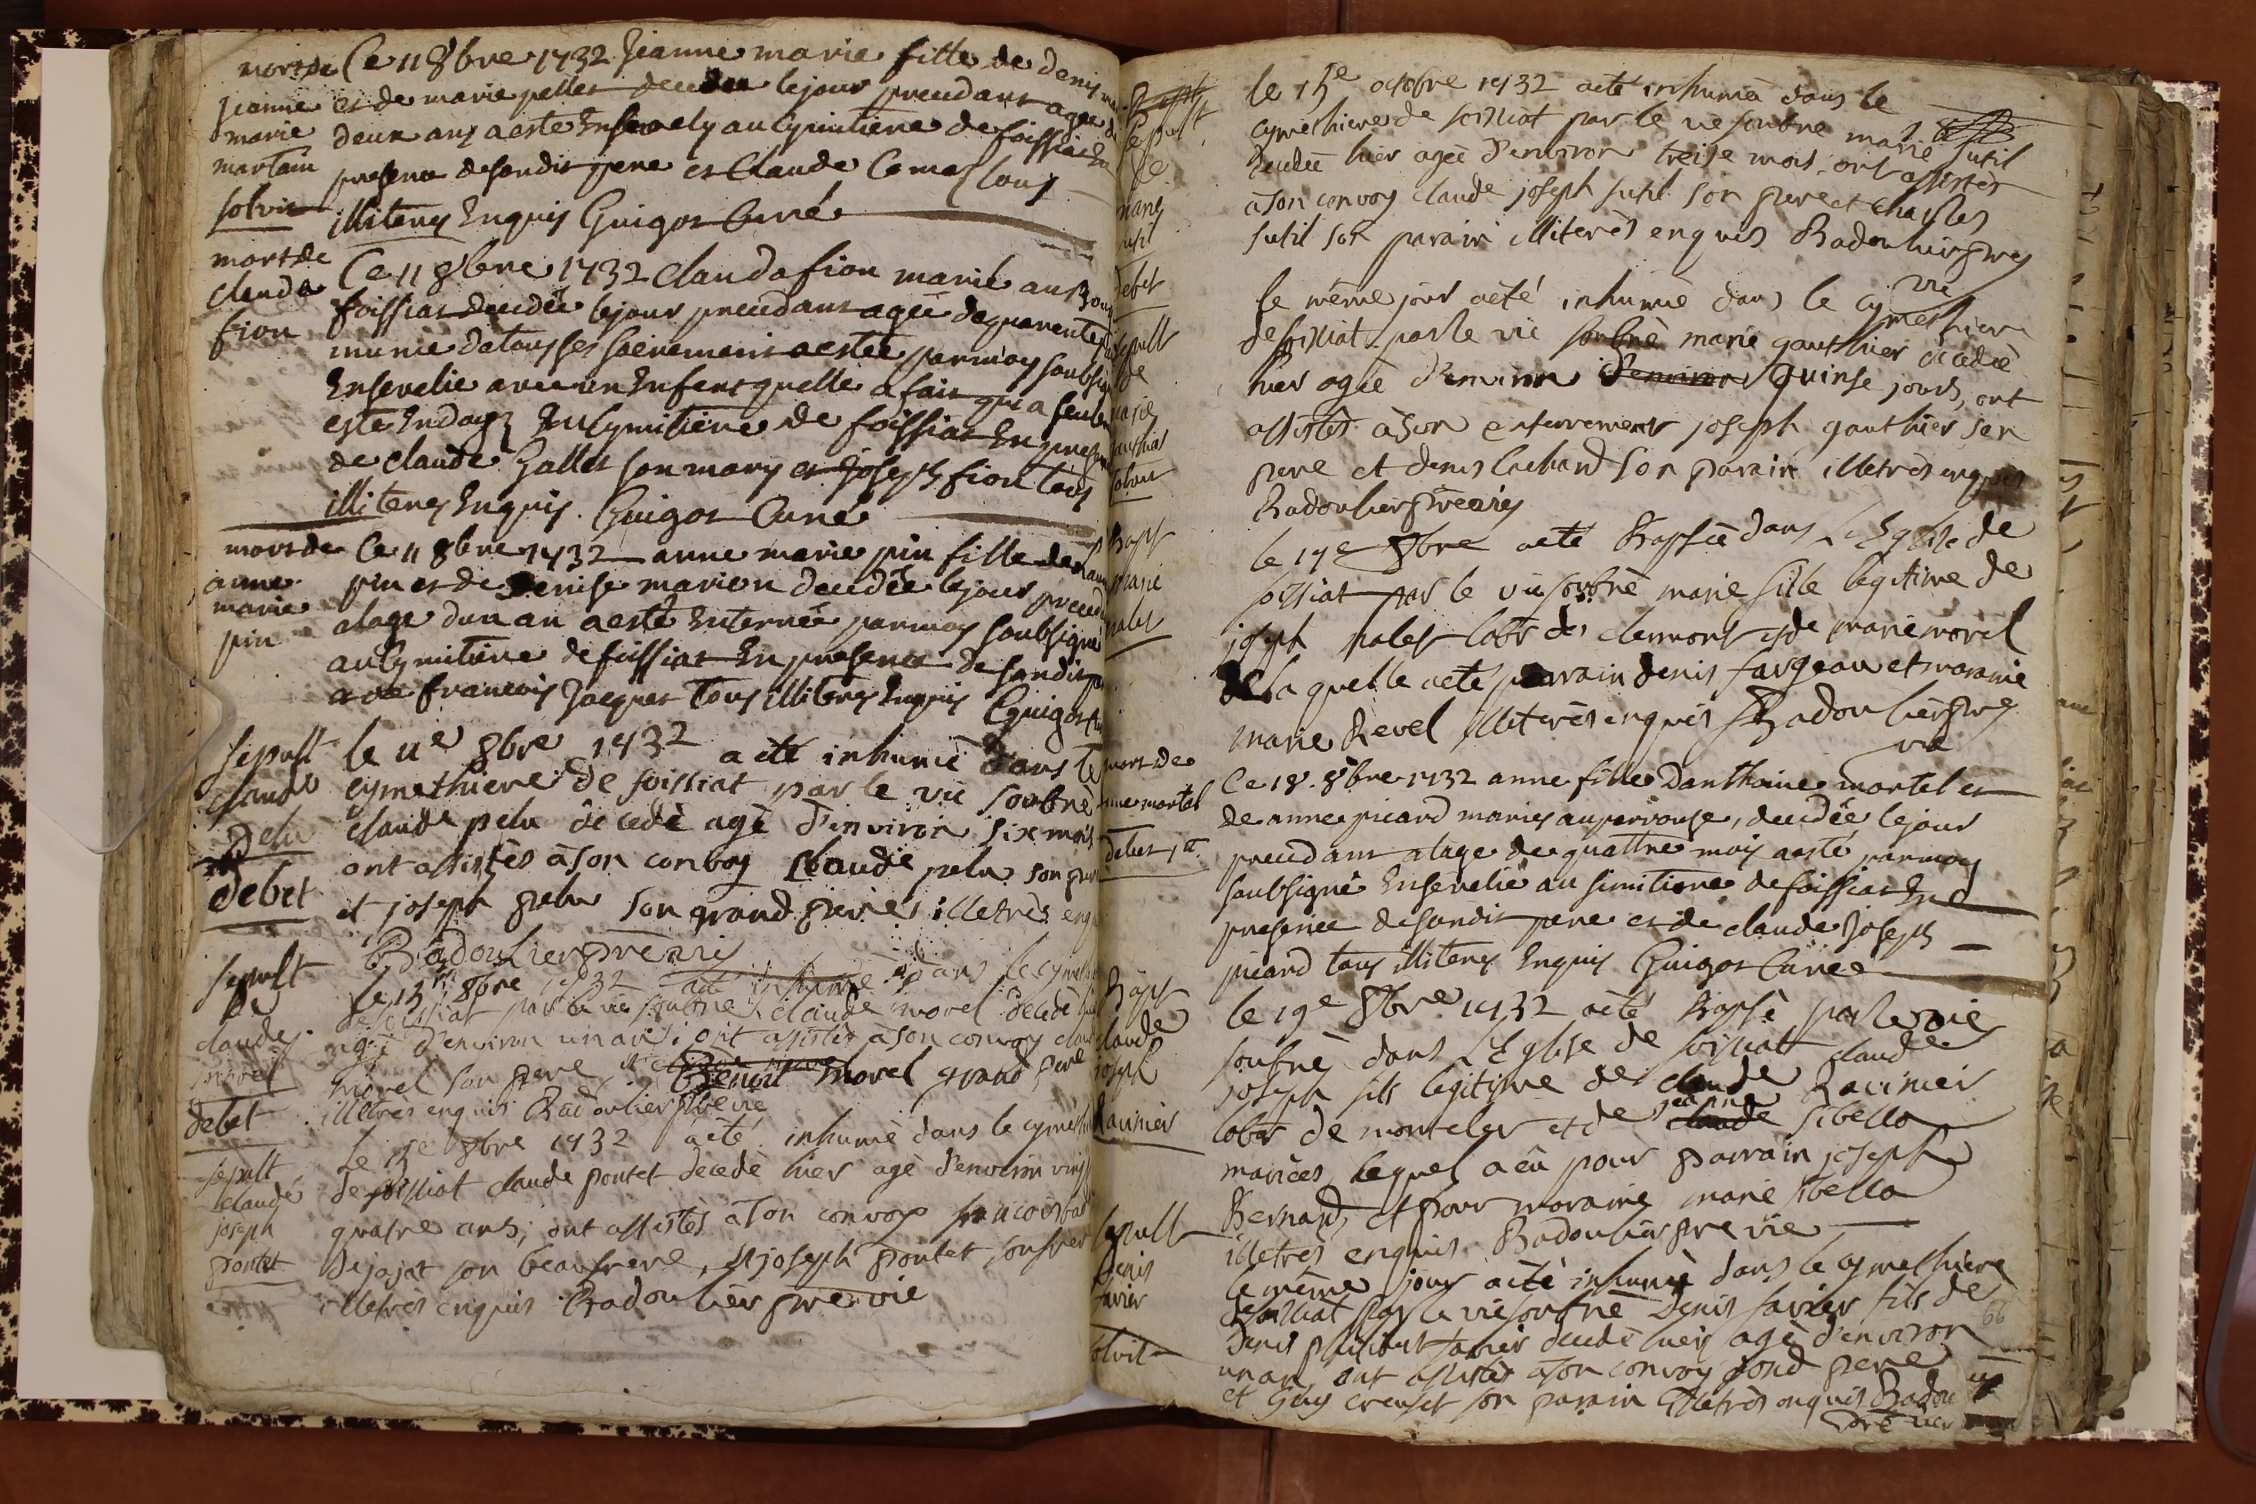 mort de
Jeanne
marie
martain
solvit
Ce 11 8bre 1732 Jeanne marie fille de denis
et de marie pellet decedee le jour precedant agee de
deux ans a este Ensevely au Cymitiere de foissiat En
presence desondit pere et Claude
illiteres Enquis Guigot Curé
mort de
clauda
fion
Ce 11 8bre 1732 Clauda fion marié au
foissiat decedée le jour precedant agée de quarente
munie de tous ses sacrement a estée par moy soubsigné
Ensevelie avec un Enfent quelle a fait qui a seulem
este Endoyé Au Cymitiere de foissiat En presence
de claude Gallet son mary et Joseph fion tous
illiteres Enquis. Guigot Curé
mort de
anne
marie
pin
Ce 11 8bre 1732 anne marie pin fille de
pin et de Denise marion decedée le jour preced
alage dun an a esté Enterrée par moy soubsigné
au Cymitiere de foissiat En presence de sondit pere
avec francois Jacquet tous illiteres Enquis Guigot
sepult
claude
pelu
debet
le 11e 8bre 1732 a eté inhumé dans le
cymethiere de foissiat par le vic soubnè
claude pelu décedé agè d'environ six mois
ont assistès à son convoy Claude pelu son pere
et joseph pelu son grand pere illetrès enq
Badoulier pre vic
sepult
de
claude
morel
debet
le 13e 8bre 1732 a eté inhumè dans le cymet
de foissiat par le vic soubné claude morel décedé hier
agé d'environ un an; ont assistès à son convoy claude
morel son pere et Benoit morel grand pere
illetrès enquis Badoulier pre vic
sepult
claude
joseph
pontet
le 15e 8bre 1732 a eté inhumè dans le cymeth
de foissiat claude pontet décedé hier agè d'environ vingt
quatre ans; ont assistès à son convoy francois
de jajat son beaufrere, et joseph pontet son frere
illetrès enquis Badoulier pre vic
sepult
de
marie
sutil
debet
le 15e octobre 1732 a eté inhumèe dans le
cymethiere de foissiat par le vic soubnè marie sutil
decedèe hier agèe d'environ treise mois, ont assistès
a son convoy claude joseph sutil son pere et charles
sutil son parain illiterès enquis Badoulier pre
vic
sepult
de
marie
gauthier
solvit
le même jour a eté inhumèe dans le cymethiere
de foissiat par le vic soubnè marie gauthier décedèe
hier agèe d'environ d'environ quinse jours, ont
assistès à son enterrement joseph gauthier son
pere et denis lachard son parain illetrès enquis
Badoulier pre vic
Bapt
marie
palet
le 17e 8bre a eté Bapsèe dans l'Eglise de
foissiat par le vic soubnè marie fille légitime de
joseph palet labr de clermont et de marie morel
de laquelle a eté parrain denis fargeau et moraine
marie Revel illiterès enquis Badoulier pre
vic
mort de
anne martel
debet
Ce 18. 8bre 1732 anne fille Danthoine martel et
de anne picard mariés au pervonge, decedée le jour
precedant alage de quattre mois a esté par moy
soubsigné Ensevelie au simitiere de foissiat En
presence desondit pere et de claude Joseph
picard tous illiteres Enquis Guigot Curé
Bapt
claude
joseph
Ravinier
le 19e 8bre 1732 a eté Bapsè par le vic
soubnè dans l'Eglise de foissiat claude
joseph fils légitime de claude Ravinier
labr de montcler et de jeanne claude sibella
mariès, lequel a eu pour parrain joseph
Bernard, et pour moraine marie sibella
illetrès enquis Badoulier pre vic
sepult
denis
favier
solvit
le même jour a eté inhumè dans le cymethiere
de foissiat par le vic soubnè Denis favier fils de
denis philibert favier decedé hier agè d'environ
un an ont assistès a son convoy sond pere
et Guy creuset son parain illetrès enquis Badou
pre vic
66